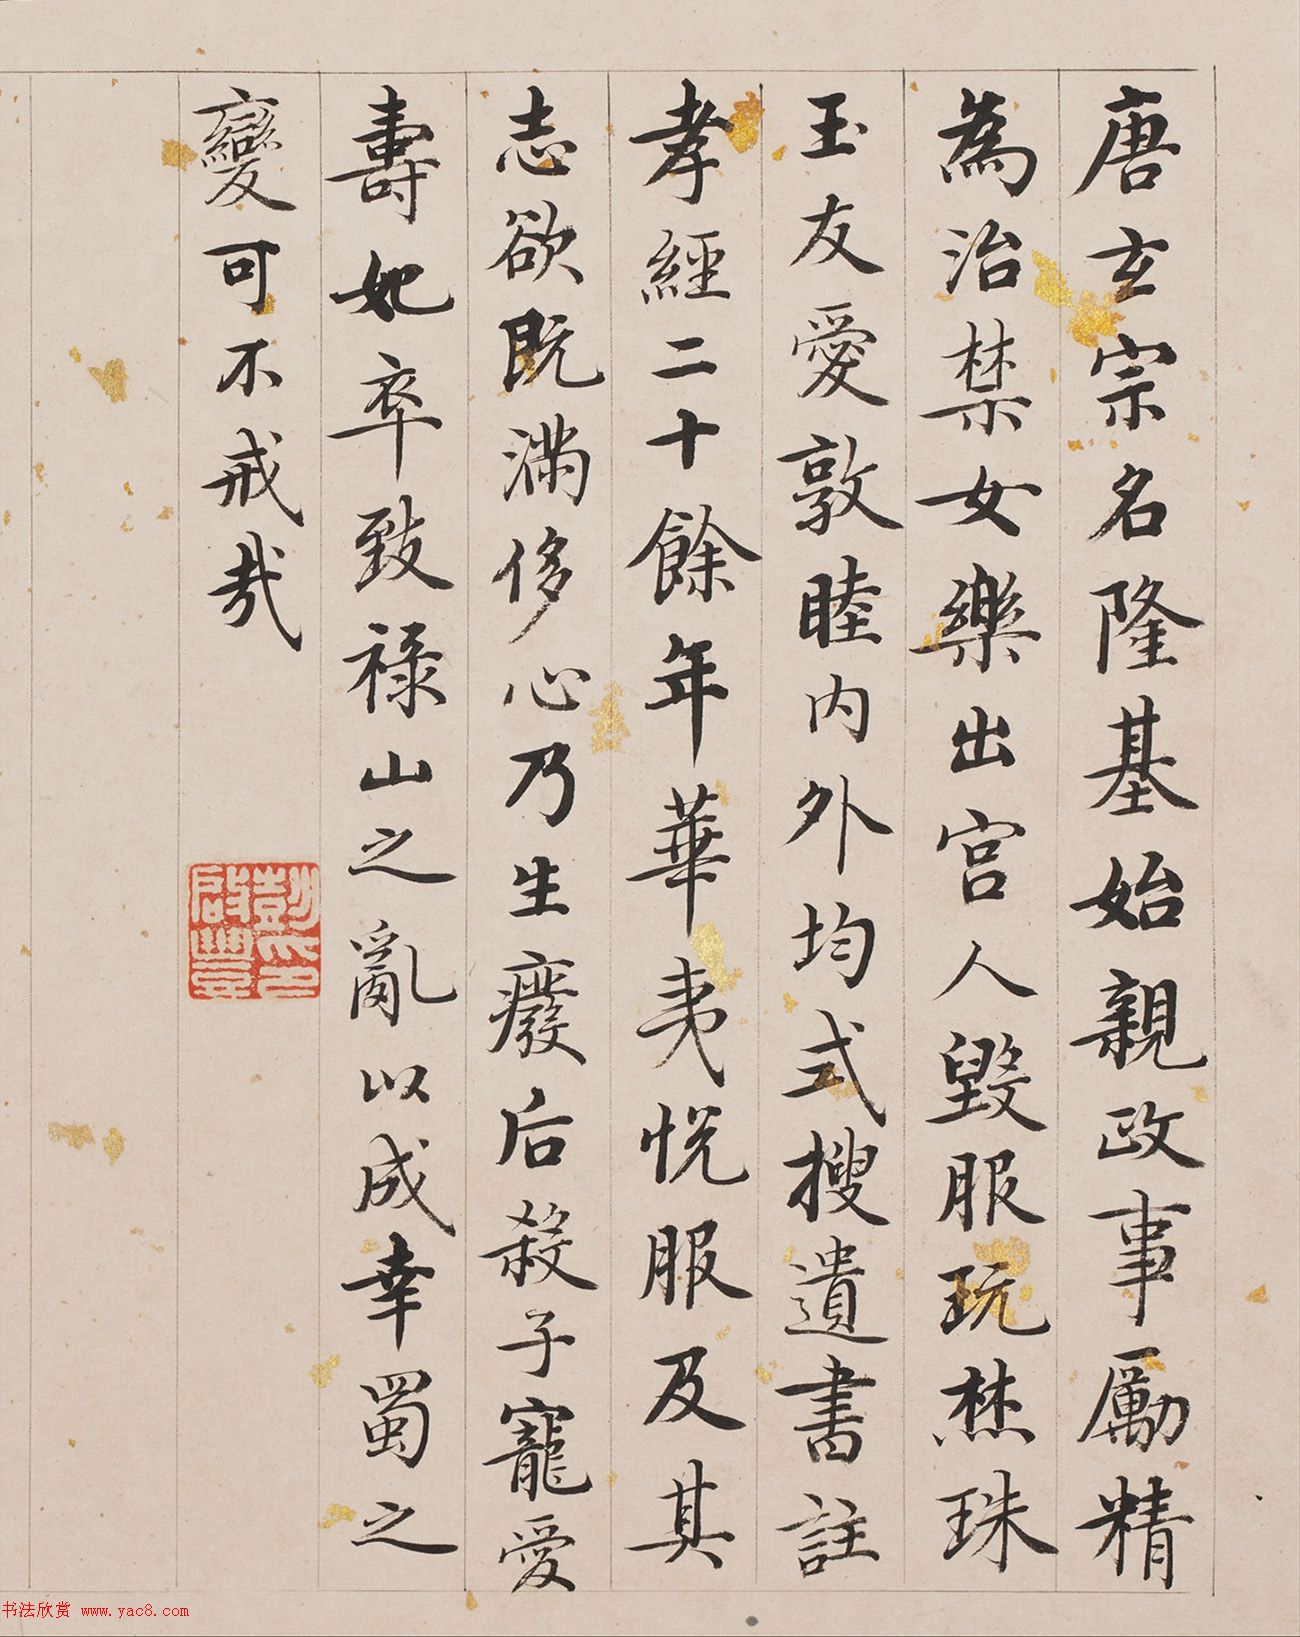 唐玄宗名隆基始親政事勵精
為治禁女樂出宮人毀服玩焚珠
玉友愛敦睦內外均式搜遺書註
孝經二十餘年華夷悅服及其
志欲既滿侈心乃生廢后殺子寵愛
壽妃卒致祿山之亂以成幸蜀之
變可不戒哉
彭年
啟豐
书法欣赏 www.yac8.com